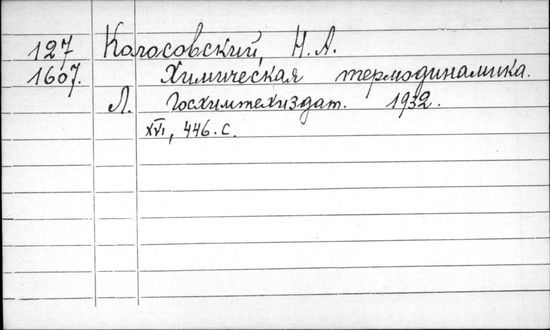 127 Колосовский, Н. А.
1607. Химическая термодинамика.
Л. Госхимтехиздат. 1932.
XVI, 446. с.